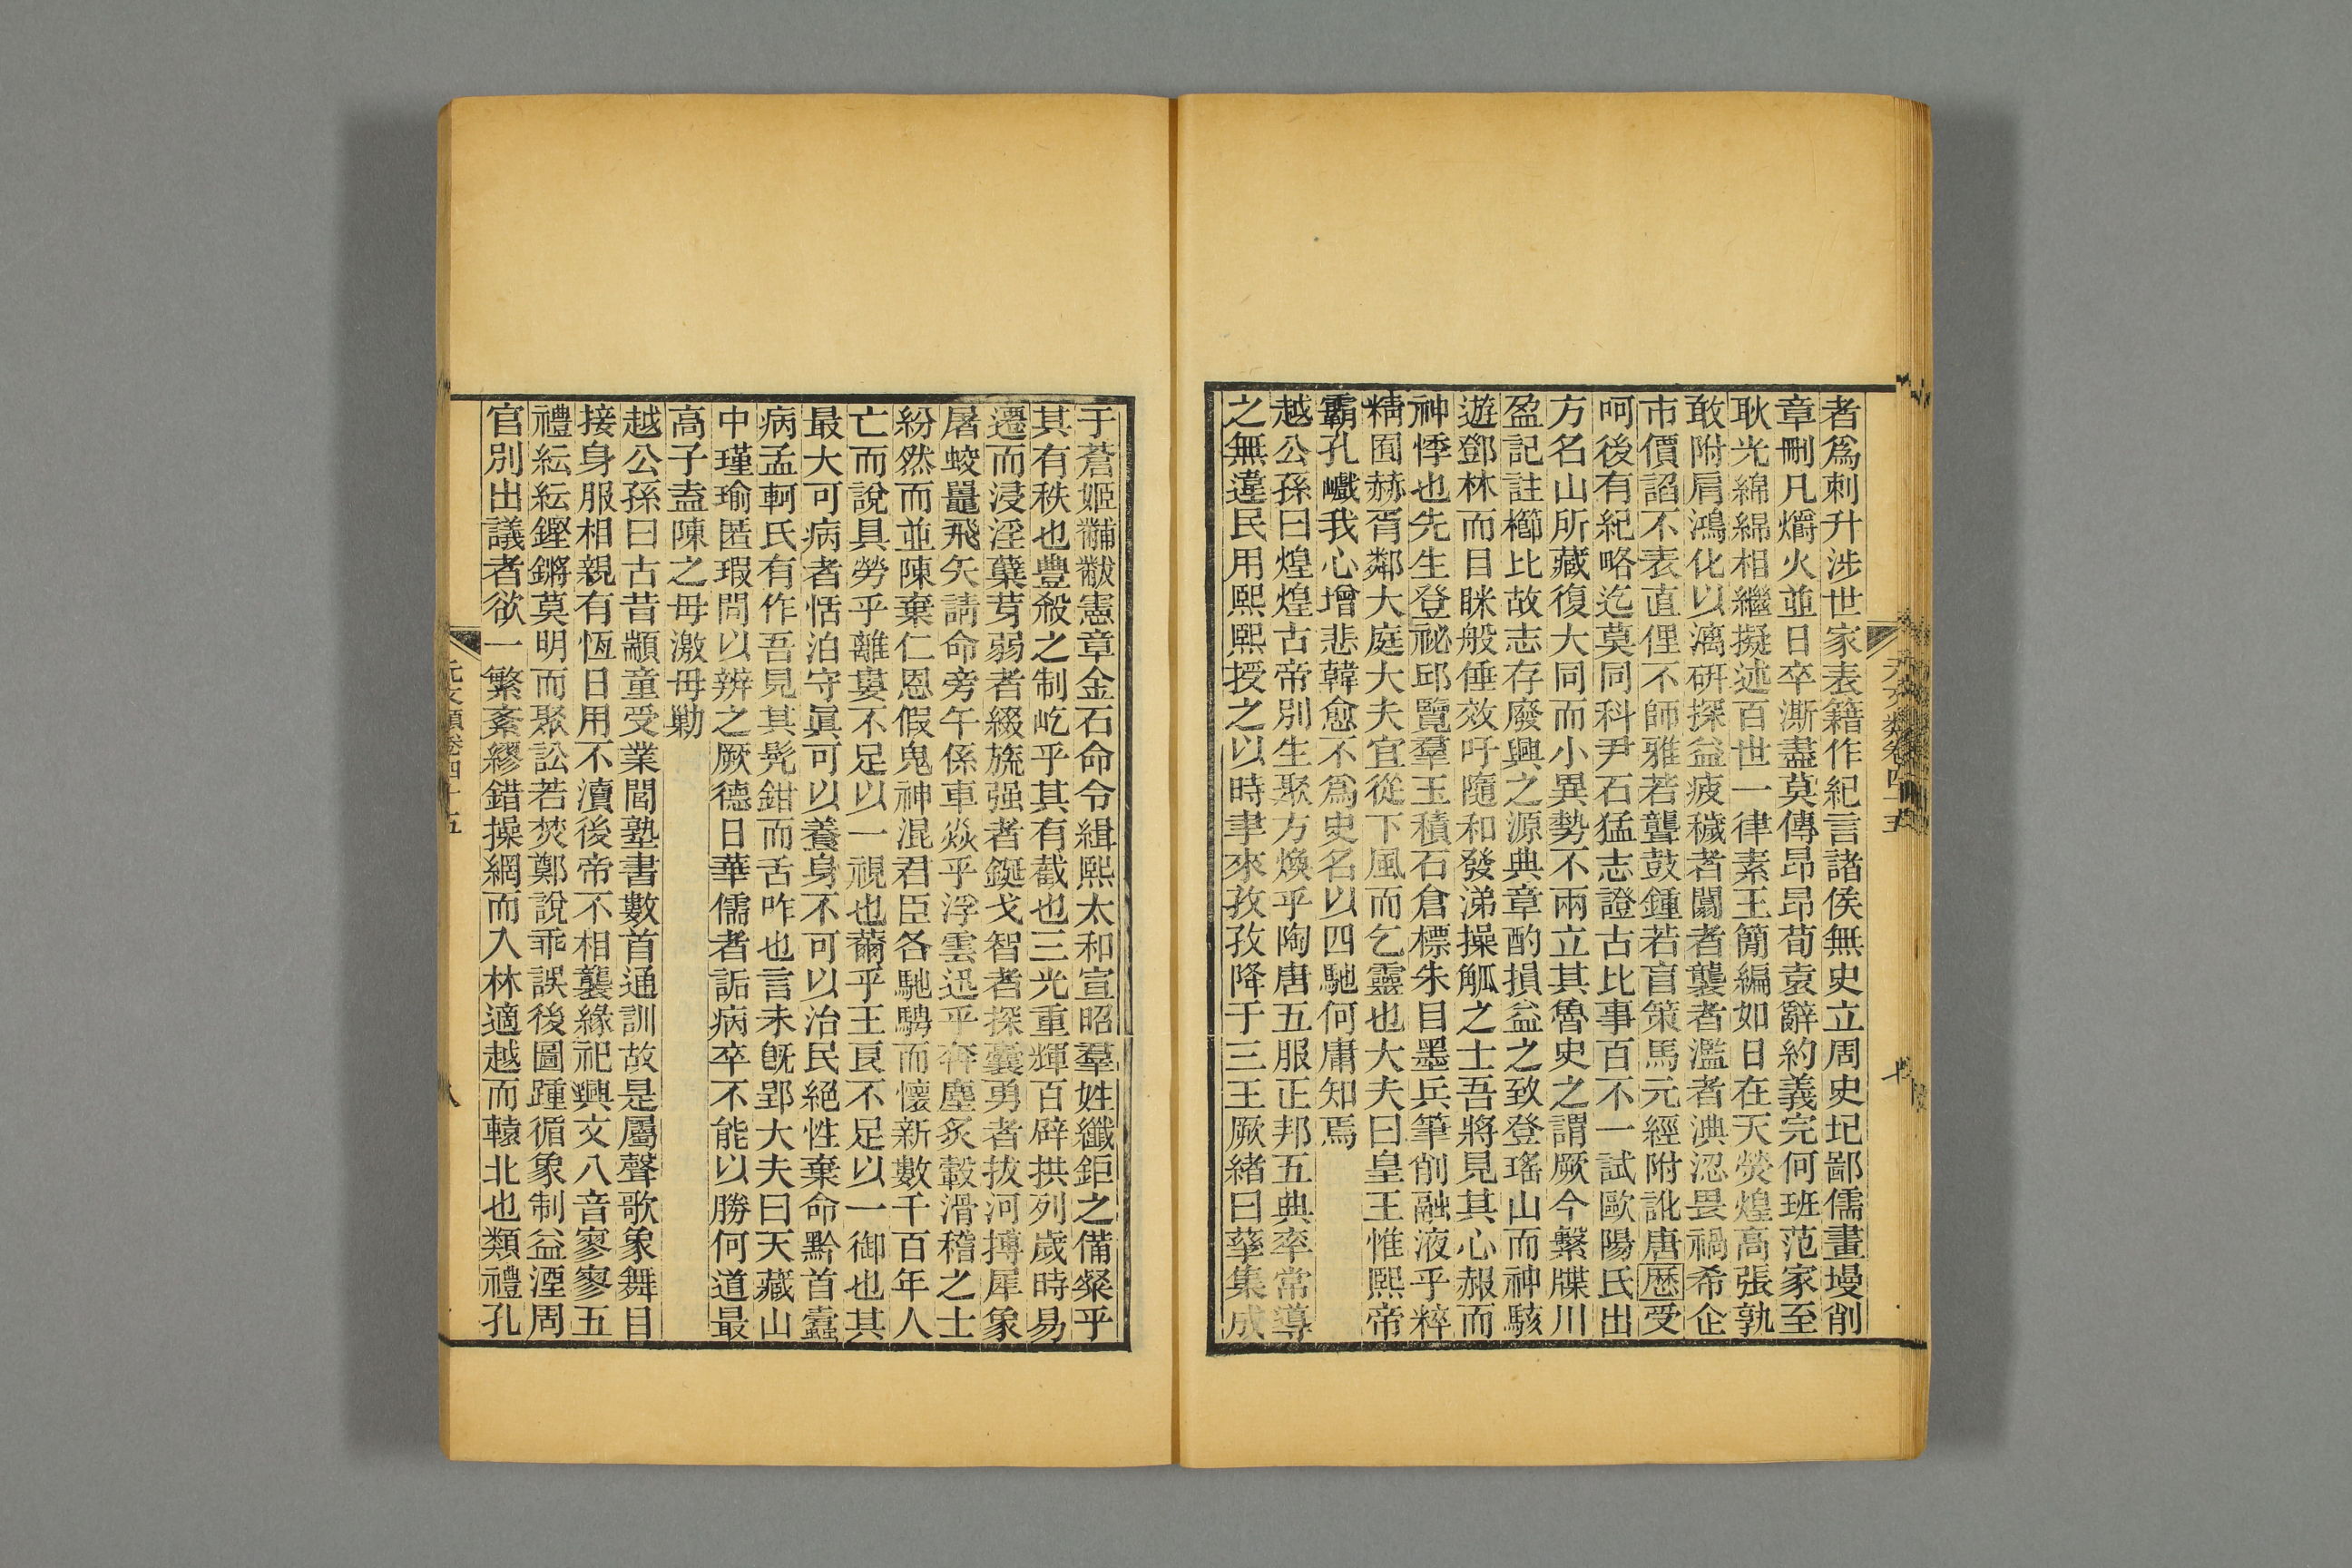 者爲刺升涉世家表籍作紀言諸侯無史立周史圮鄙儒畫墁削
章刪凡爝火並日卒澌盡莫傳昂昂荀袁辭約義完何班范家至
耿光綿綿相繼擬述百世一律素王簡編如日在天熒煌高張孰
敢附肩鴻化以漓硏探益疲穢者闒者襲者濫者淟涊畏禍希企
市價諂不表直俚不師雅若聾鼓鍾若盲策馬元經附訛唐歴受
呵後有紀略迄莫同科尹石猛志證古比事百不一試歐陽氏出
方名山所藏復大同而小異勢不兩立其魯史之謂厥今繫牒川
盈記註櫛比故志存廢興之源典章酌損益之致登瑤山而神駭
遊鄧林而目眯般倕效吁隨和發涕操觚之士吾將見其心赧而
神悸也先生登祕邱覽羣玉積石倉標朱目墨兵筆削融液乎粹
精囿赫胥鄰大庭大夫宜從下風而乞靈也大夫曰皇王惟熙帝
霸孔巇我心增悲韓愈不爲史名以四馳何庸知焉
越公孫曰煌煌古帝別生聚方煥乎陶唐五服正邦五典率常導
之無違民用熙熙授之以時聿來孜孜降于三王厥緒曰孳集成
元文類卷四十五
七
于蒼姬黼黻憲章金石命令緝熙太和宣昭羣姓纖鉅之備粲乎
其有秩也豊殺之制屹乎其有截也三光重輝百辟拱列歲時易
遷而浸淫蘖芽弱者綴旒强者鋋戈智者探囊勇者拔河搏犀象
屠蛟鼉飛矢請命旁午係車焱乎浮雲迅乎奔塵炙轂滑稽之士
紛然而並陳棄仁恩假鬼神混君臣各馳騁而懷新數千百年人
亡而說具勞乎離婁不足以一視也薾乎王良不足以一御也其
最大可病者恬泊守眞可以養身不可以治民絕性棄命黔首蠹
病孟軻氏有作吾見其髡鉗而舌咋也言未旣郢大夫曰天藏山
中瑾瑜匿瑕問以辨之厥德日華儒者詬病卒不能以勝何道最
高子盍陳之毋激毋勦
越公孫曰古昔顓童受業閭塾書數首通訓故是屬聲歌象舞目
接身服相親有恆日用不瀆後帝不相襲緣祀興文八音寥寥五
禮紜紜鏗鏘莫明而聚訟若焚鄭說乖誤後圖踵循象制益湮周
官別出議者欲一繁紊繆錯操網而入林適越而轅北也類禮孔
元文類卷四十五
八